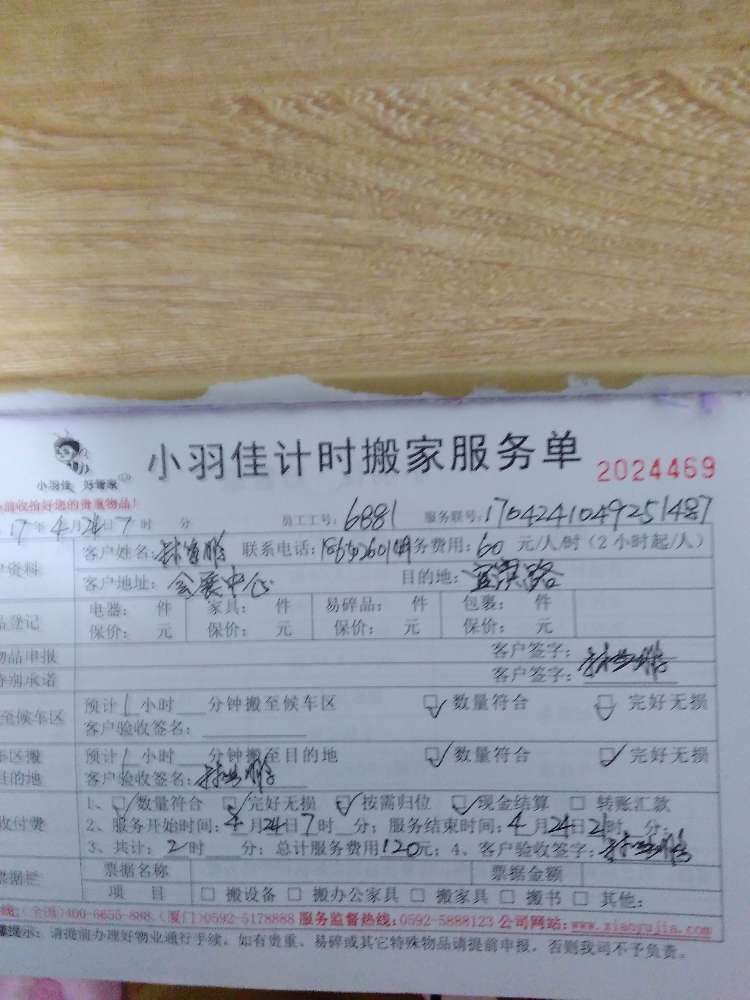 小羽佳 好管家
小羽佳计时搬家服务单 2024469
收拾好您的贵重物品!
17年4月24日7时 分 员工工号:6881 服务联号:1704241049251487
资料 客户姓名: 联系电话: 务费用:60 元/人/时(2小时起/人)
客户地址:会展中心 目的地:
登记 电器: 件 家具: 件 易碎品: 件 包裹: 件
保价: 元 保价: 元 保价: 元 保价: 元
物品申报 客户签字:
特别承诺 客户签字:
至候车区 预计1小时 分钟搬至候车区 ☑数量符合 ☑完好无损
客户验收签名:
车区搬 预计1小时 分钟搬至目的地 ☑数量符合 ☑完好无损
目的地 客户验收签名:
收付费 1、☑数量符合 ☑完好无损 ☑按需归位 ☑现金结算 □转账汇款
2、服务开始时间:4月24日7时 分;服务结束时间:4月24日 时 分;
3、共计:2时 分;总计服务费用120元;4、客户验收签字:
票据栏 票据名称 票据金额
项 目 □搬设备 □搬办公家具 □搬家具 □搬书 □其他:
线:(全国)400-6655-888 (厦门)0592-5178888 服务监督热线:0592-5888123 公司网站:www.xiaoyujia.com
提示:请提前办理好物业通行手续,如有贵重、易碎或其它特殊物品请提前申报,否则我司不予负责。